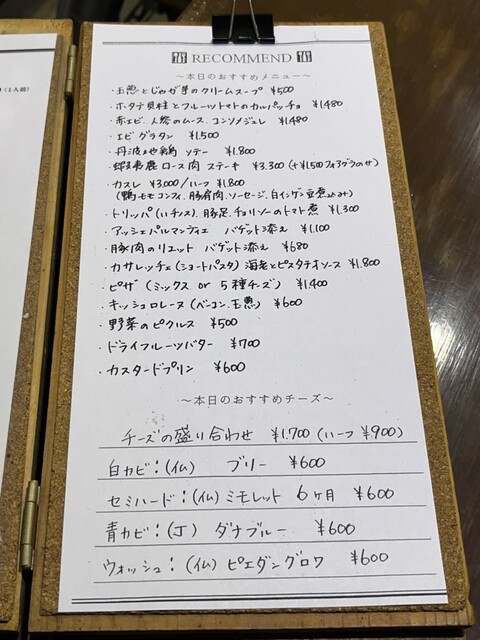 (1人前)
RECOMMEND
～本日のおすすめメニュー～
・玉葱とじゃが芋のクリームスープ ¥500
・ホタテ貝柱とフルーツトマトのカルパッチョ ¥1,480
・赤エビ、人参のムース、コンソメジュレ ¥1,480
・エビグラタン ¥1,500
・丹波地鶏 ソテー ¥1,800
・蝦夷鹿ロース肉 ステーキ ¥3,300 (+¥1,500フォアグラのせ)
・カスレ ¥3,000/ハーフ ¥1,800
(鴨モモコンフィ、豚肩肉、ソーセージ、白インゲン豆煮込み)
・トリッパ(ハチノス)、豚足、チョリソーのトマト煮 ¥1,300
・アッシェパルマンティエ バゲット添え ¥1,100
・豚肉のリエット バゲット添え ¥680
・カサレッチェ(ショートパスタ)海老とピスタチオソース ¥1,800
・ピザ (ミックス or 5種チーズ) ¥1,400
・キッシュロレーヌ(ベーコン、玉葱) ¥600
・野菜のピクルス ¥500
・ドライフルーツバター ¥700
・カスタードプリン ¥600
～本日のおすすめチーズ～
チーズの盛り合わせ ¥1,700 (ハーフ ¥900)
白カビ：(仏) ブリー ¥600
セミハード：(仏) ミモレット 6ヶ月 ¥600
青カビ：(丁) ダナブルー ¥600
ウォッシュ：(仏) ピエダングロワ ¥600